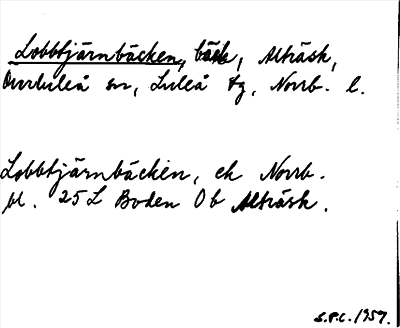 Lobbtjärnbäcken, bäck, Alträsk,
Överluleå sn, Luleå tg, Norrb. l.
Lobbtjärnbäcken, ek Norrb.
bl. 25 L Boden Ob Alträsk.
S.P.C. 1957.